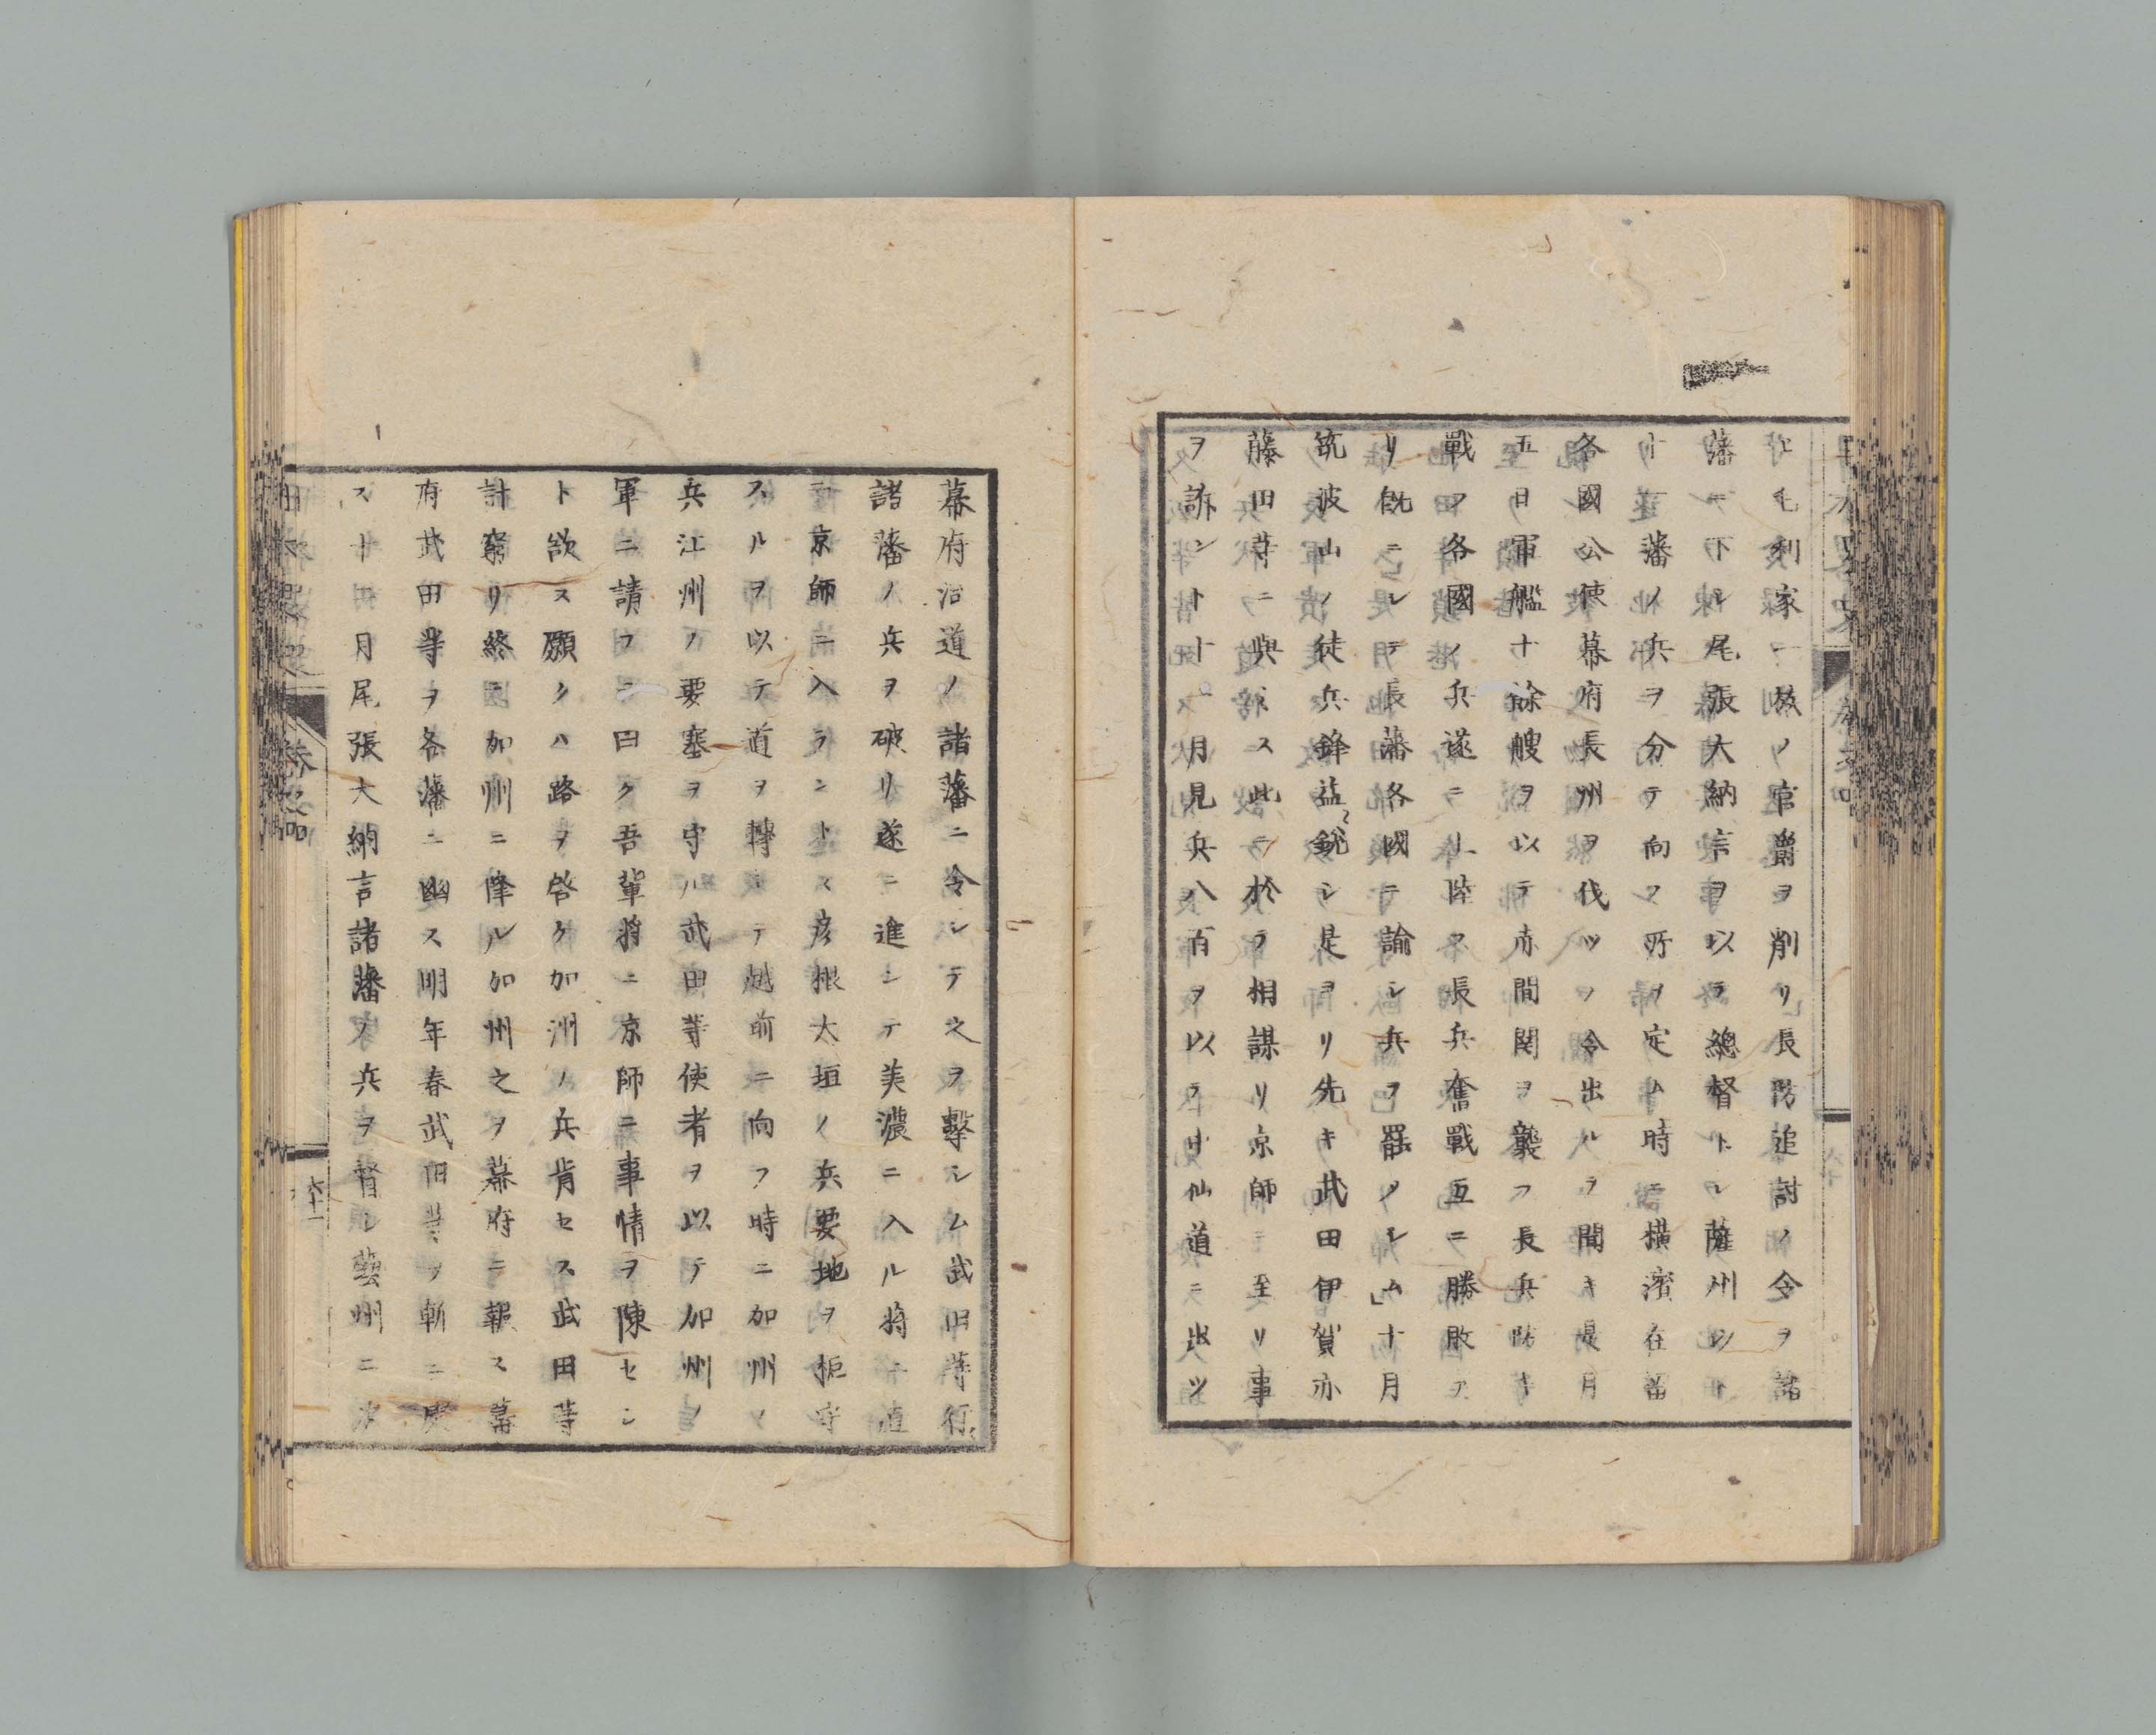 ヒ毛利家一族ノ官爵ヲ削リ長防追討ノ令ヲ諸
藩ニ下シ尾張大納言ヲ以テ總督トシ薩州以下
十一藩ノ兵ヲ分テ向フ所ヲ定ム時ニ横濱在留
各國公使幕府長州ヲ伐ツノ令出ルヲ聞キ是月
五日軍艦十餘艘ヲ以テ赤間関ヲ襲フ長兵防キ
戰フ各國ノ兵遂ニ上陸ス長兵奮戰互ニ勝敗ア
リ既ニシテ長藩各國ニ諭シ兵ヲ罷メシム」十月
筑波山ノ徒兵鋒益〻銳シ是ヨリ先キ武田伊賀亦
藤田等ニ與ミス此ニ於テ相謀リ京師ニ至リ事
ヲ訴ント十一月見兵八百ヲ以テ中仙道ニ出ツ
幕府沿道ノ諸藩ニ令シテ之ヲ擊シム武田等行〻
諸藩ノ兵ヲ破リ遂ニ進シテ美濃ニ入ル将ニ直
ニ京師ニ入ラントス彦根大垣ノ兵要地ヲ拒守
スルヲ以テ道ヲ轉シテ越前ニ向フ時ニ加州ノ
兵江州ノ要塞ヲ守ル武田等使者ヲ以テ加州ノ
軍ニ請フテ曰ク吾輩将ニ京師ニ事情ヲ陳セン
ト欲ス願クハ路ヲ啓ケ加洲ノ兵肯セス武田等
計窮リ終ニ加州ニ降ル加州之ヲ幕府ニ報ス幕
府武田等ヲ各藩ニ幽ス明年春武田等ヲ斬ニ處
ス十一月尾張大納言諸藩ノ兵ヲ督シ藝州ニ次
六十一